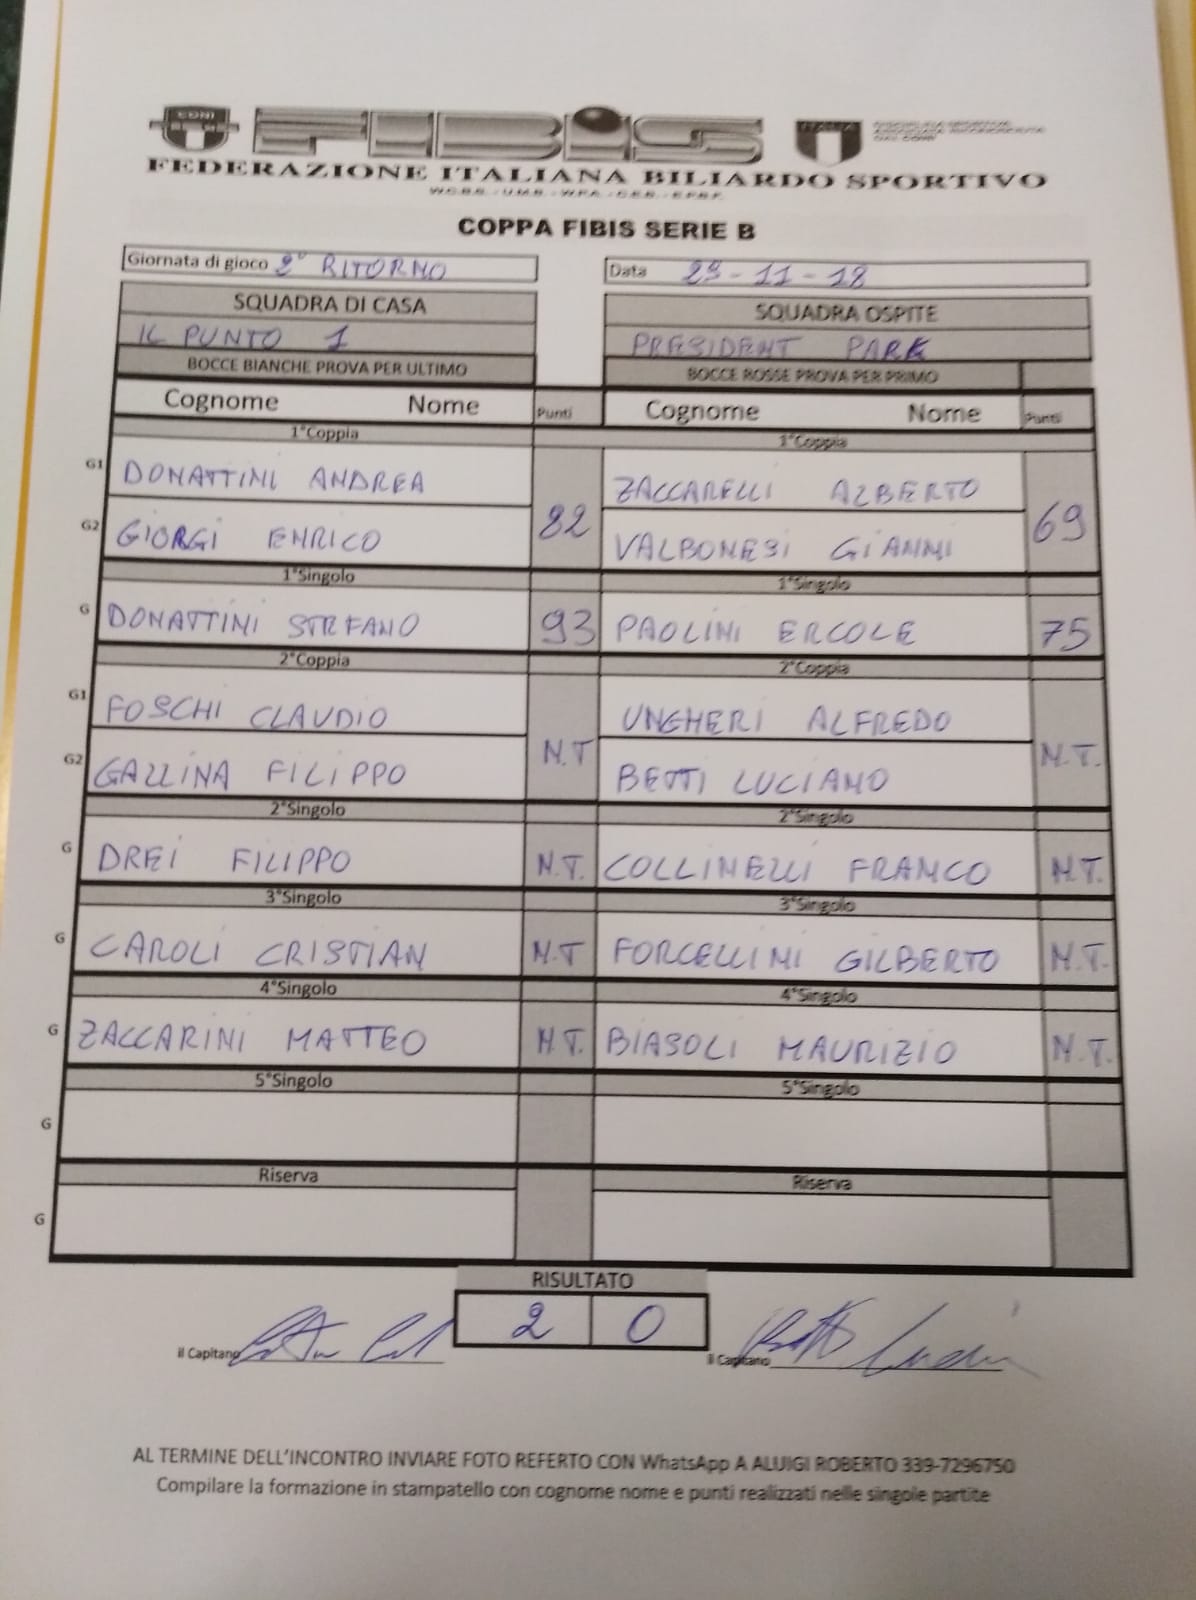 CONI FIBiS ITALIA
FEDERAZIONE ITALIANA BILIARDO SPORTIVO
COPPA FIBIS SERIE B
Giornata di gioco 2° RITORNO Data 29-11-18
SQUADRA DI CASA SQUADRA OSPITE
IL PUNTO 1 PRESIDENT PARK
BOCCE BIANCHE PROVA PER ULTIMO BOCCE ROSSE PROVA PER PRIMO
Cognome Nome Punti Cognome Nome Punti
1°Coppia 1°Coppia
G1 DONATTINI ANDREA ZACCARELLI ALBERTO
82 69
G2 GIORGI ENRICO VALBONESI GIANNI
1°Singolo 1°Singolo
G DONATTINI STEFANO 93 PAOLINI ERCOLE 75
2°Coppia 2°Coppia
G1 FOSCHI CLAUDIO UNGHERI ALFREDO
N.T N.T.
G2 GALLINA FILIPPO BETTI LUCIANO
2°Singolo 2°Singolo
G DREI FILIPPO N.T. COLLINELLI FRANCO N.T.
3°Singolo 3°Singolo
G CAROLI CRISTIAN N.T FORCELLINI GILBERTO N.T.
4°Singolo 4°Singolo
G ZACCARINI MATTEO N.T. BIASOLI MAURIZIO N.T.
5°Singolo 5°Singolo
G
Riserva Riserva
G
RISULTATO
2 0
il Capitano il Capitano
AL TERMINE DELL'INCONTRO INVIARE FOTO REFERTO CON WhatsApp A ALUIGI ROBERTO 339-7296750
Compilare la formazione in stampatello con cognome nome e punti realizzati nelle singole partite